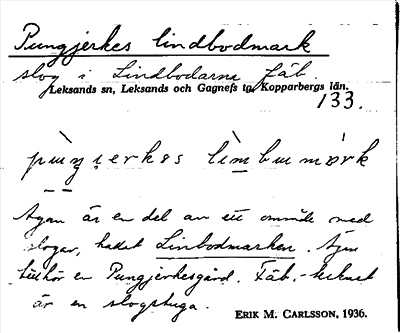 Pungjerkes lindbodmark
slog i Lindbodarna fäb.
Leksands sn, Leksands och Gagnefs tg, Kopparbergs län.
133.
pùŋjerkəs lìmbumòrk
Ägan är en del av ett område med
slogar, kallat Linbodmarken. Ägan
tillhör en Pungjerkesgård. Fäb.-
är en slogstuga.
ERIK M. CARLSSON, 1936.